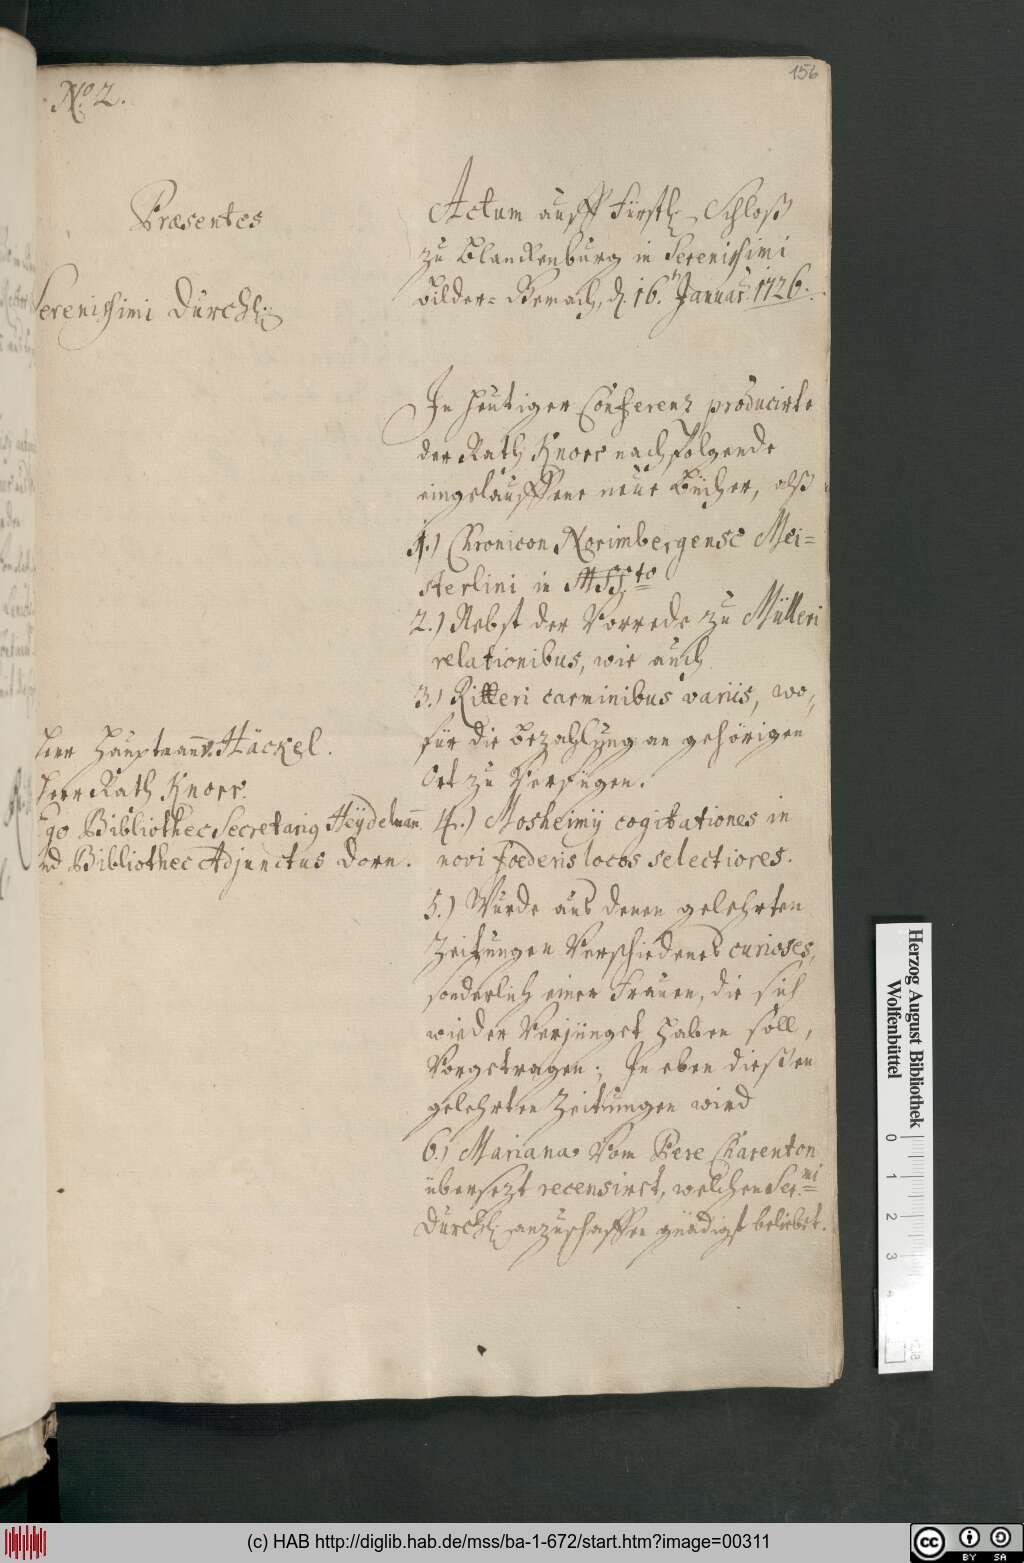 156
No 2.
Præsentes
Serenissimi Durchl:
Herr Hauptmann v. Häckel.
Herr Rath Knorr.
Ego Bibliothec Secretarius Heydelmann
und Bibliothec Adjunctus Dorn.
Actum auff Fürstl. Schloß
zu Blanckenburg in Serenissimi
Bilder-Gemach, d. 16. Januar. 1726.
In heutiger Conferenz producirte
der Rath Knorr nachfolgende
eingelauffene neue Bücher, alß
1.) Chronicon Norimbergense Mei=
sterlini in MSSto
2.) Nebst der Vorrede zu Mülleri
relationibus, wie auch
3.) Ritteri carminibus variis, wo=
für die Bezahlung an gehörigen
Ort zu Verfügen.
4.) Mosheimij cogitationes in
novi foederis locos selectiores.
5.) Wurde aus denen gelehrten
Zeitungen Verschiedenes curioses,
sonderlich einer Frauen, die sich
wieder Verjünget haben soll,
Vorgetragen; In eben dießen
gelehrten Zeitungen wird
6.) Mariana Vom Pere Charenton
übersezt recensiret, welchen Ser.mi
Durchl. anzuschaffen gnädigst beliebet.
Herzog August Bibliothek
Wolfenbüttel
0
1
2
3
(c) HAB http://diglib.hab.de/mss/ba-1-672/start.htm?image=00311
cc BY SA